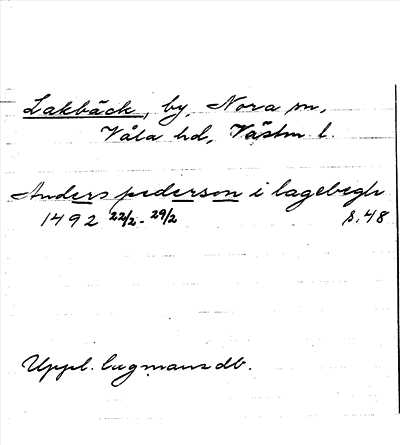 Lakbäck, by, Nora sn,
Våla hd, Västm. l.
Anders pederson i lagebegh
1492 22/2 - 29/2 s. 48
Uppl. lagmans db.